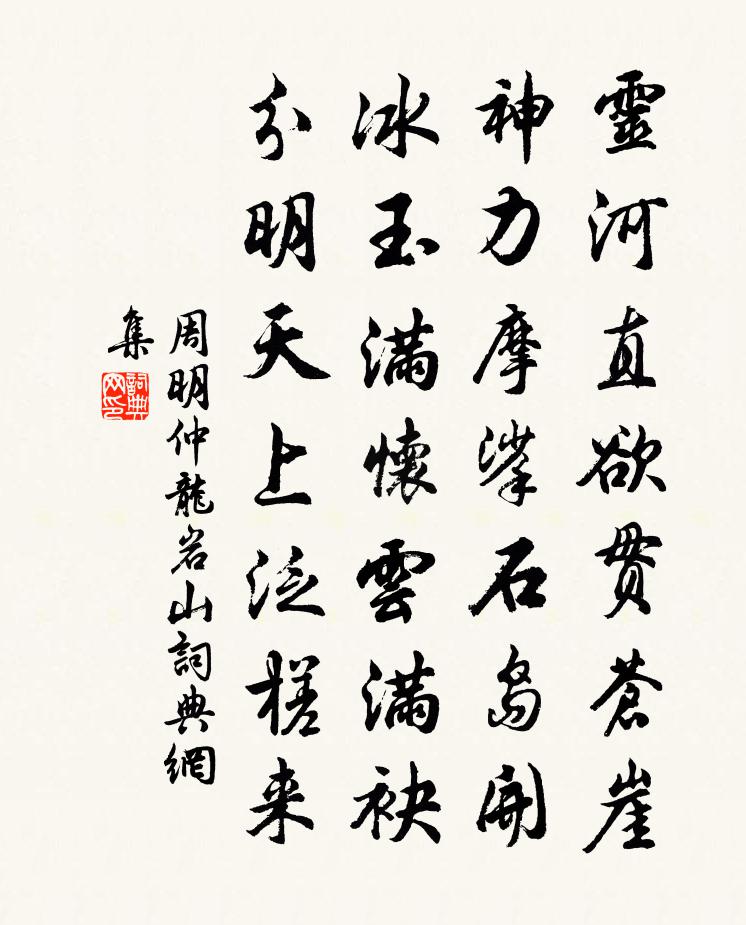 靈河直欲贯蒼崖
神力摩挲石島開
冰玉滿懷雲滿袂
分明天上泛槎来
周明仲龍岩山詞典網
集
詞典
网印